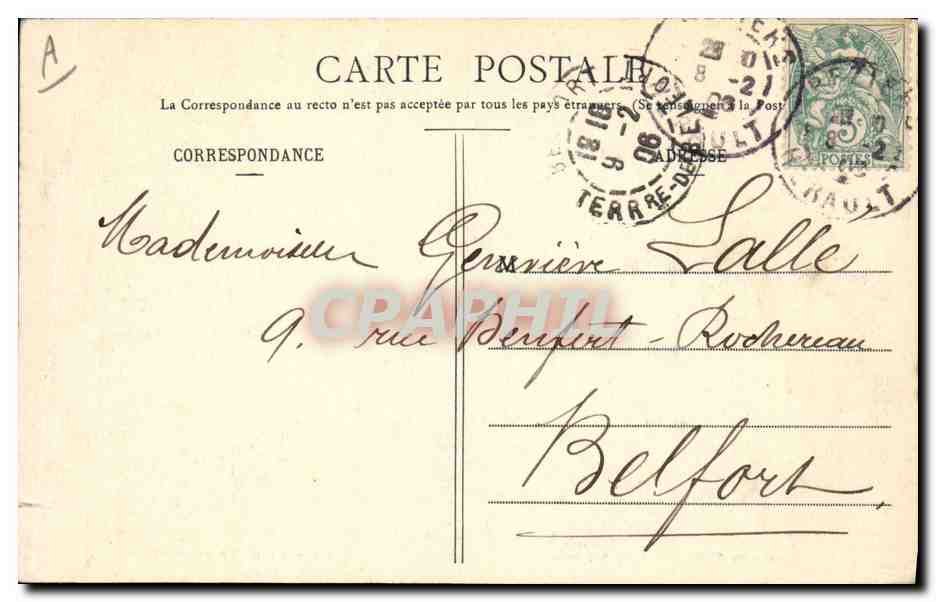 A
CARTE POSTALE
La Correspondance au recto n'est pas acceptée par tous les pays étrangers. (Se renseigner à la Post
CORRESPONDANCE
ADRESSE
18 16
9 -2
06
BELFORT
TERRRE-DE-BELFORT
28
8 -2
HÉRAULT
BEZIERS
5c
POSTES
Mademoiselle Geneviève Lalle
M
9. rue Denfert-Rochereau
Belfort
CPAPHIL